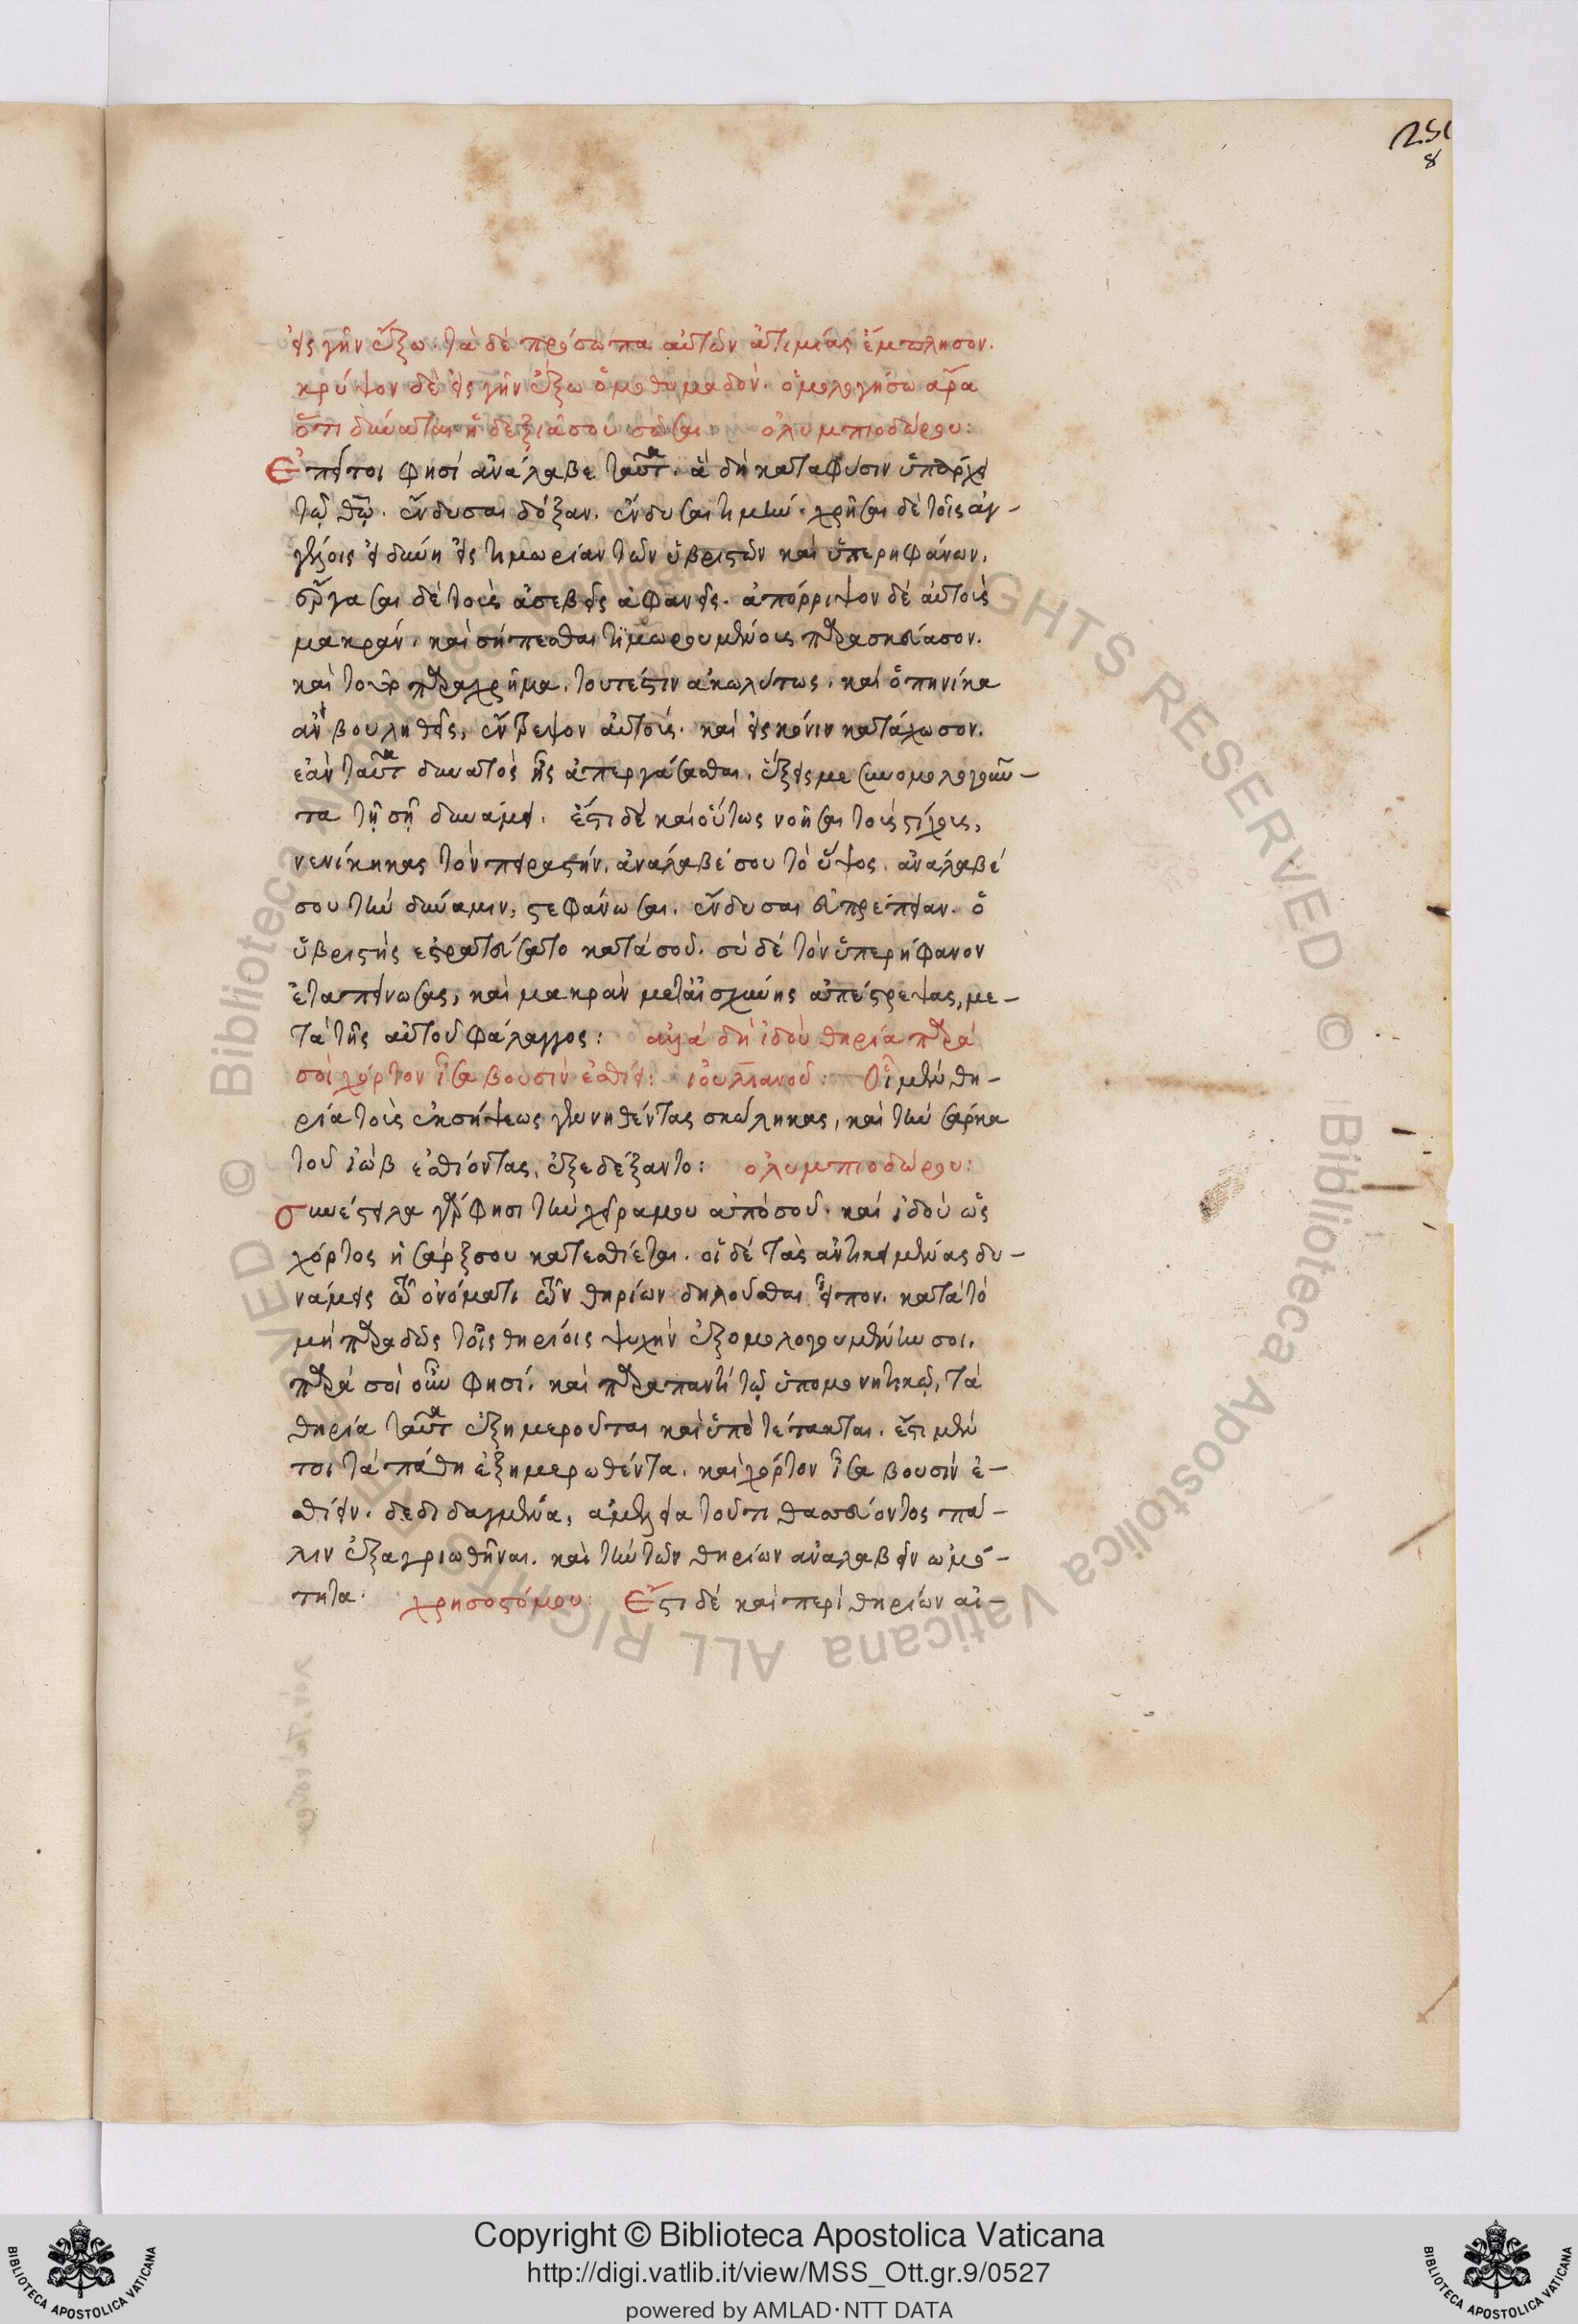 251
8
εἰς γῆν ἔξω· τὰ δὲ πρόσωπα αὐτῶν ἀτιμίας ἔμπλησον.
κρύψον δὲ εἰς γῆν ἔξω ὁμοθυμαδόν. ὁμολογήσω ἄρα
ὅτι δύναται ἡ δεξιά σου σῶσαι· ὀλυμπιοδώρου:
Ἐπεί τοι φησί ἀνάλαβε ταῦτα. ἃ δὴ κατα φύσιν ὑπάρχει
τῷ θῷ. ἔνδυσαι δόξαν. ἔνδυσαι τιμήν. χρῆσαι δὲ τοῖς ἀγ-
γέλοις εἰς τιμωρίαν τῶν ὑβριστῶν καὶ ὑπερηφάνων.
ἔργασαι δὲ τοὺς ἀσεβεῖς ἀφανεῖς. ἀπόρριψον δὲ αὐτοὺς
μακράν. καὶ σήπεσθαι τιμωρουμένους παρασκεύασον.
καὶ τοῦτο παραχρῆμα. τουτέστιν ἀκωλύτως. καὶ ὁπηνίκα
ἂν βουληθεῖς, ἔντρεψον αὐτούς. καὶ εἰς κόνιν κατάχωσον.
ἐὰν ταῦτα δυνατὸς ἧς ἀπεργάσασθαι. ἕξεις με συνομολογοῦν-
τα τῇ σῇ δυνάμει. ἔστι δὲ καὶ οὕτως νοῆσαι τοὺς στίχους,
νενίκηκας τὸν πειραστήν. ἀνάλαβέ σου τὸ ὕψος. ἀνάλαβέ
σου τὴν δύναμιν, στεφάνωσαι. ἔνδυσαι εὐπρέπειαν. ὁ
ὑβριστὴς ἐστρατεύσατο κατὰ σοῦ. σὺ δὲ τὸν ὑπερήφανον
ἐταπείνωσας, καὶ μακρὰν μετ αἰσχύνης ἀπέστρεψας, με-
τὰ τῆς αὐτοῦ φάλαγγος: ἀλλὰ δὴ ἰδοὺ θηρία παρά
σοὶ χόρτον ἴσα βουσὶν ἐσθίει: ἰουλιανοῦ: Οἱ μὲν θη-
ρία τοὺς ἐκ σήψεως γεννηθέντας σκώληκας, καὶ τὴν σάρκα
τοῦ ἰὼβ ἐσθίοντας, ἐξεδέξαντο: ὀλυμπιοδώρου:
συνέστειλα γάρ φησι τὴν χεῖρα μου ἀπὸ σοῦ. καὶ ἰδοὺ ὡς
χόρτος ἡ σάρξ σου κατεσθίεται. οἱ δὲ τὰς ἀντικειμένας δυ-
νάμεις τῷ ὀνόματι τῶν θηρίων δηλοῦσθαι εἶπον. κατὰ τὸ
μὴ παραδῷς τοῖς θηρίοις ψυχὴν ἐξομολογουμένην σοι.
παρά σοὶ οὖν φησί. καὶ παρα παντὶ τῷ ὑπομονητικῷ, τὰ
θηρία ταῦτα ἐξημεροῦται καὶ ὑποτέτακται. ἔστι μέν
τοι τὰ πάθη ἐξημερωθέντα. καὶ χόρτον ἴσα βουσὶν ἐ-
σθίειν. δεδιδαγμένα, ἀμελείᾳ τοῦ τιθασεύοντος πά-
λιν ἐξαγριωθῆναι. καὶ τὴν τῶν θηρίων ἀναλαβεῖν ὠμό-
τητα. χρυσοστόμου: Ἔστι δὲ καὶ περὶ θηρίων αἰ-
Copyright © Biblioteca Apostolica Vaticana
http://digi.vatlib.it/view/MSS_Ott.gr.9/0527
powered by AMLAD·NTT DATA
© Biblioteca Apostolica Vaticana ALL RIGHTS RESERVED
© Biblioteca Apostolica Vaticana ALL RIGHTS RESERVED
BIBLIOTECA APOSTOLICA VATICANA
BIBLIOTECA APOSTOLICA VATICANA